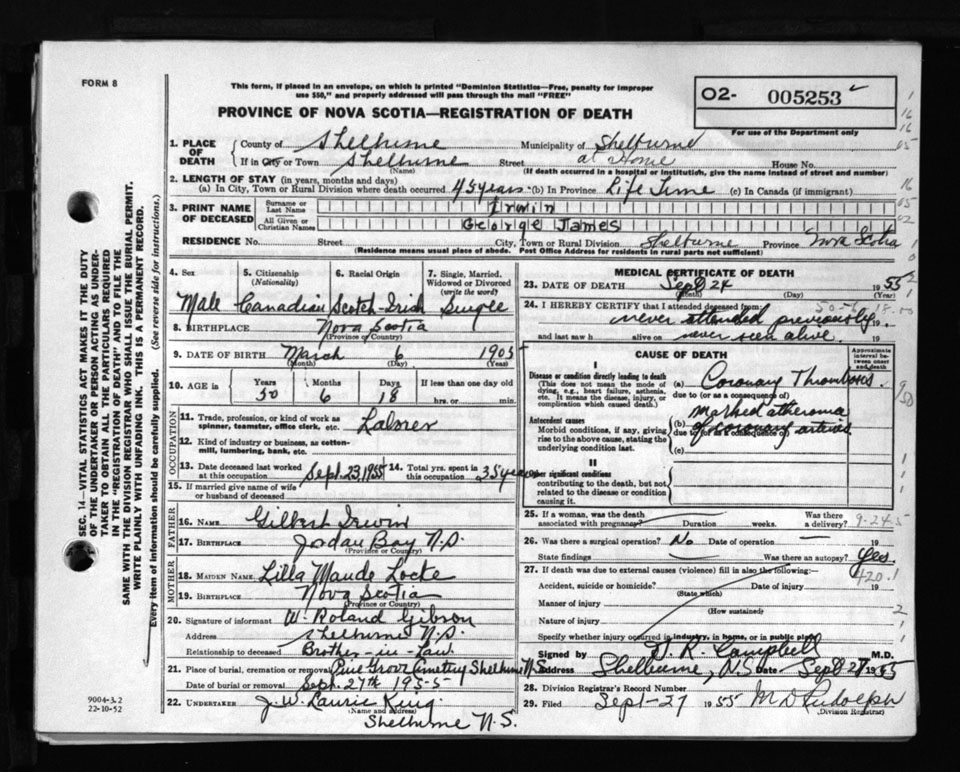 FORM 8
This form, if placed in an envelope, on which is printed "Dominion Statistics—Free, penalty for improper
use $50," and properly addressed will pass through the mail "FREE"
PROVINCE OF NOVA SCOTIA—REGISTRATION OF DEATH
O2- 005253
For use of the Department only
1. PLACE OF DEATH
County of Shelburne Municipality of Shelburne
If in City or Town Shelburne Street at Home House No.
(Name) (If death occurred in a hospital or institution, give the name instead of street and number)
2. LENGTH OF STAY (in years, months and days)
(a) In City, Town or Rural Division where death occurred 45 years (b) In Province Life Time (c) In Canada (if immigrant)
3. PRINT NAME OF DECEASED
Surname or Last Name Irwin
All Given or Christian Names George James
RESIDENCE No. Street City, Town or Rural Division Shelburne Province Nova Scotia
(Residence means usual place of abode. Post Office Address for residents in rural parts not sufficient)
4. Sex 5. Citizenship (Nationality) 6. Racial Origin 7. Single, Married, Widowed or Divorced (write the word)
Male Canadian Scotch-Irish Single
8. BIRTHPLACE Nova Scotia
(Province or Country)
9. DATE OF BIRTH March 6 1905
(Month) (Day) (Year)
10. AGE in Years Months Days If less than one day old
50 6 18 hrs. or min.
OCCUPATION
11. Trade, profession, or kind of work as spinner, teamster, office clerk, etc. Laborer
12. Kind of industry or business, as cotton-mill, lumbering, bank, etc.
13. Date deceased last worked at this occupation Sept. 23, 1955 14. Total yrs. spent in this occupation 35 years
15. If married give name of wife or husband of deceased
FATHER
16. NAME Gilbert Irwin
17. BIRTHPLACE Jordan Bay N.S.
(Province or Country)
MOTHER
18. MAIDEN NAME Lilla Maude Locke
19. BIRTHPLACE Nova Scotia
(Province or Country)
20. Signature of informant W. Roland Gibson
Address Shelburne N.S.
Relationship to deceased Brother-in-Law
21. Place of burial, cremation or removal Pine Grove Cemetery Shelburne N.S.
Date of burial or removal Sept. 27th 1955
22. UNDERTAKER J. W. Laurie King
(Name and address)
Shelburne N.S.
MEDICAL CERTIFICATE OF DEATH
23. DATE OF DEATH Sept 24 1955
(Month) (Day) (Year)
24. I HEREBY CERTIFY that I attended deceased from
never attended previously. 19
and last saw h alive on never seen alive. 19
CAUSE OF DEATH
Approximate interval between onset and death
I
Disease or condition directly leading to death
(This does not mean the mode of dying, e.g., heart failure, asthenia, etc. It means the disease, injury, or complication which caused death.)
(a) Coronary Thrombosis.
due to (or as a consequence of)
Antecedent causes
Morbid conditions, if any, giving rise to the above cause, stating the underlying condition last.
(b) Marked atheroma of coronary arteries
due to (or as a consequence of)
(c)
II
Other significant conditions
contributing to the death, but not related to the disease or condition causing it.
25. If a woman, was the death associated with pregnancy? Duration weeks. Was there a delivery?
9-24-5
26. Was there a surgical operation? No Date of operation —
State findings Was there an autopsy? Yes.
420.1
27. If death was due to external causes (violence) fill in also the following:
Accident, suicide or homicide? Date of injury 19
(State which)
Manner of injury
(How sustained)
Nature of injury
Specify whether injury occurred in industry, in home, or in public place
Signed by D. R. Campbell M.D.
Address Shelburne, N.S. Date Sept 27 1955
28. Division Registrar's Record Number
29. Filed Sept-27 1955 M D Rudolph
(Division Registrar)
SEC. 14—VITAL STATISTICS ACT MAKES IT THE DUTY
OF THE UNDERTAKER OR PERSON ACTING AS UNDERTAKER TO OBTAIN ALL THE PARTICULARS REQUIRED
IN THE "REGISTRATION OF DEATH" AND TO FILE THE
SAME WITH THE DIVISION REGISTRAR WHO SHALL ISSUE THE BURIAL PERMIT.
WRITE PLAINLY WITH UNFADING INK. THIS IS A PERMANENT RECORD.
Every item of information should be carefully supplied. (See reverse side for instructions.)
9004-3.2
22-10-52